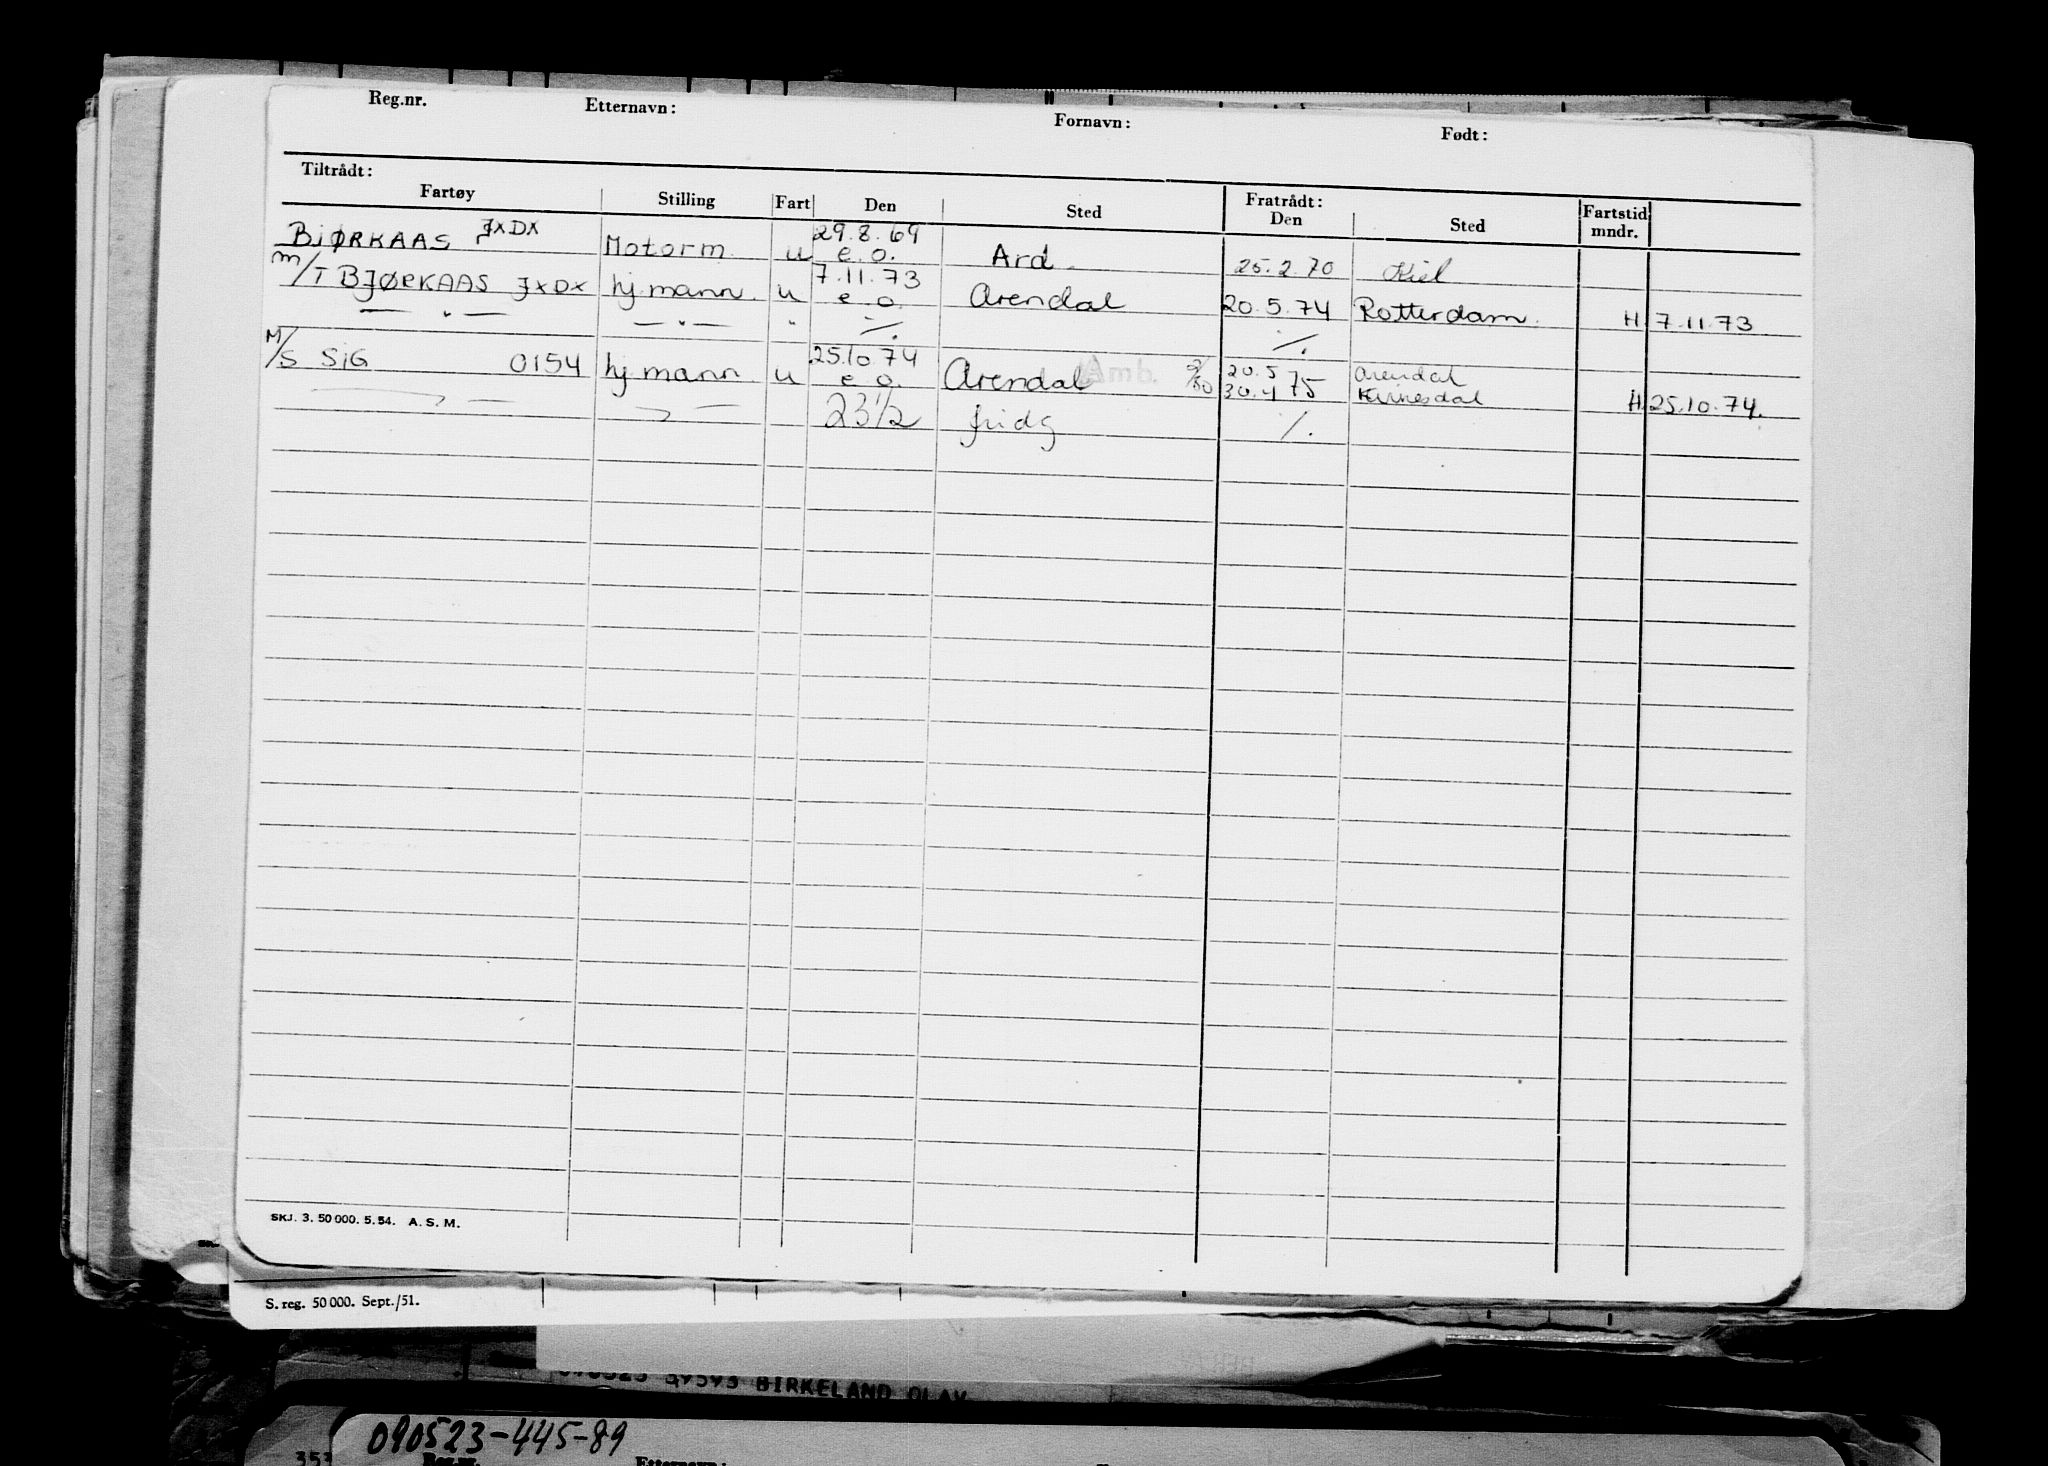 Reg.nr. Etternavn: Fornavn: Født:
Tiltrådt: Fratrådt:
Fartøy Stilling Fart Den Sted Den Sted Fartstid mndr.
BJØRKAAS JXDX Motorm. u 29.8.69 e.o. Ard. 25.2.70 Kiel
M/T BJØRKAAS JXDX hj.mann. u 7.11.73 e.o. Arendal 20.5.74 Rotterdam. H 7.11.73
— " — — " — " ./. ./.
M/S SIG 0154 hj.mann u 25.10.74 e.o. Arendal Amb. 20.5 30.4 75 Arendal H 25.10.74.
23 1/2 fridg ./.
SKJ. 3. 50 000. 5. 54. A. S. M.
S. reg. 50 000. Sept./51.
BIRKELAND OLAV
090523-445-89
353 Reg.nr. Etternavn: